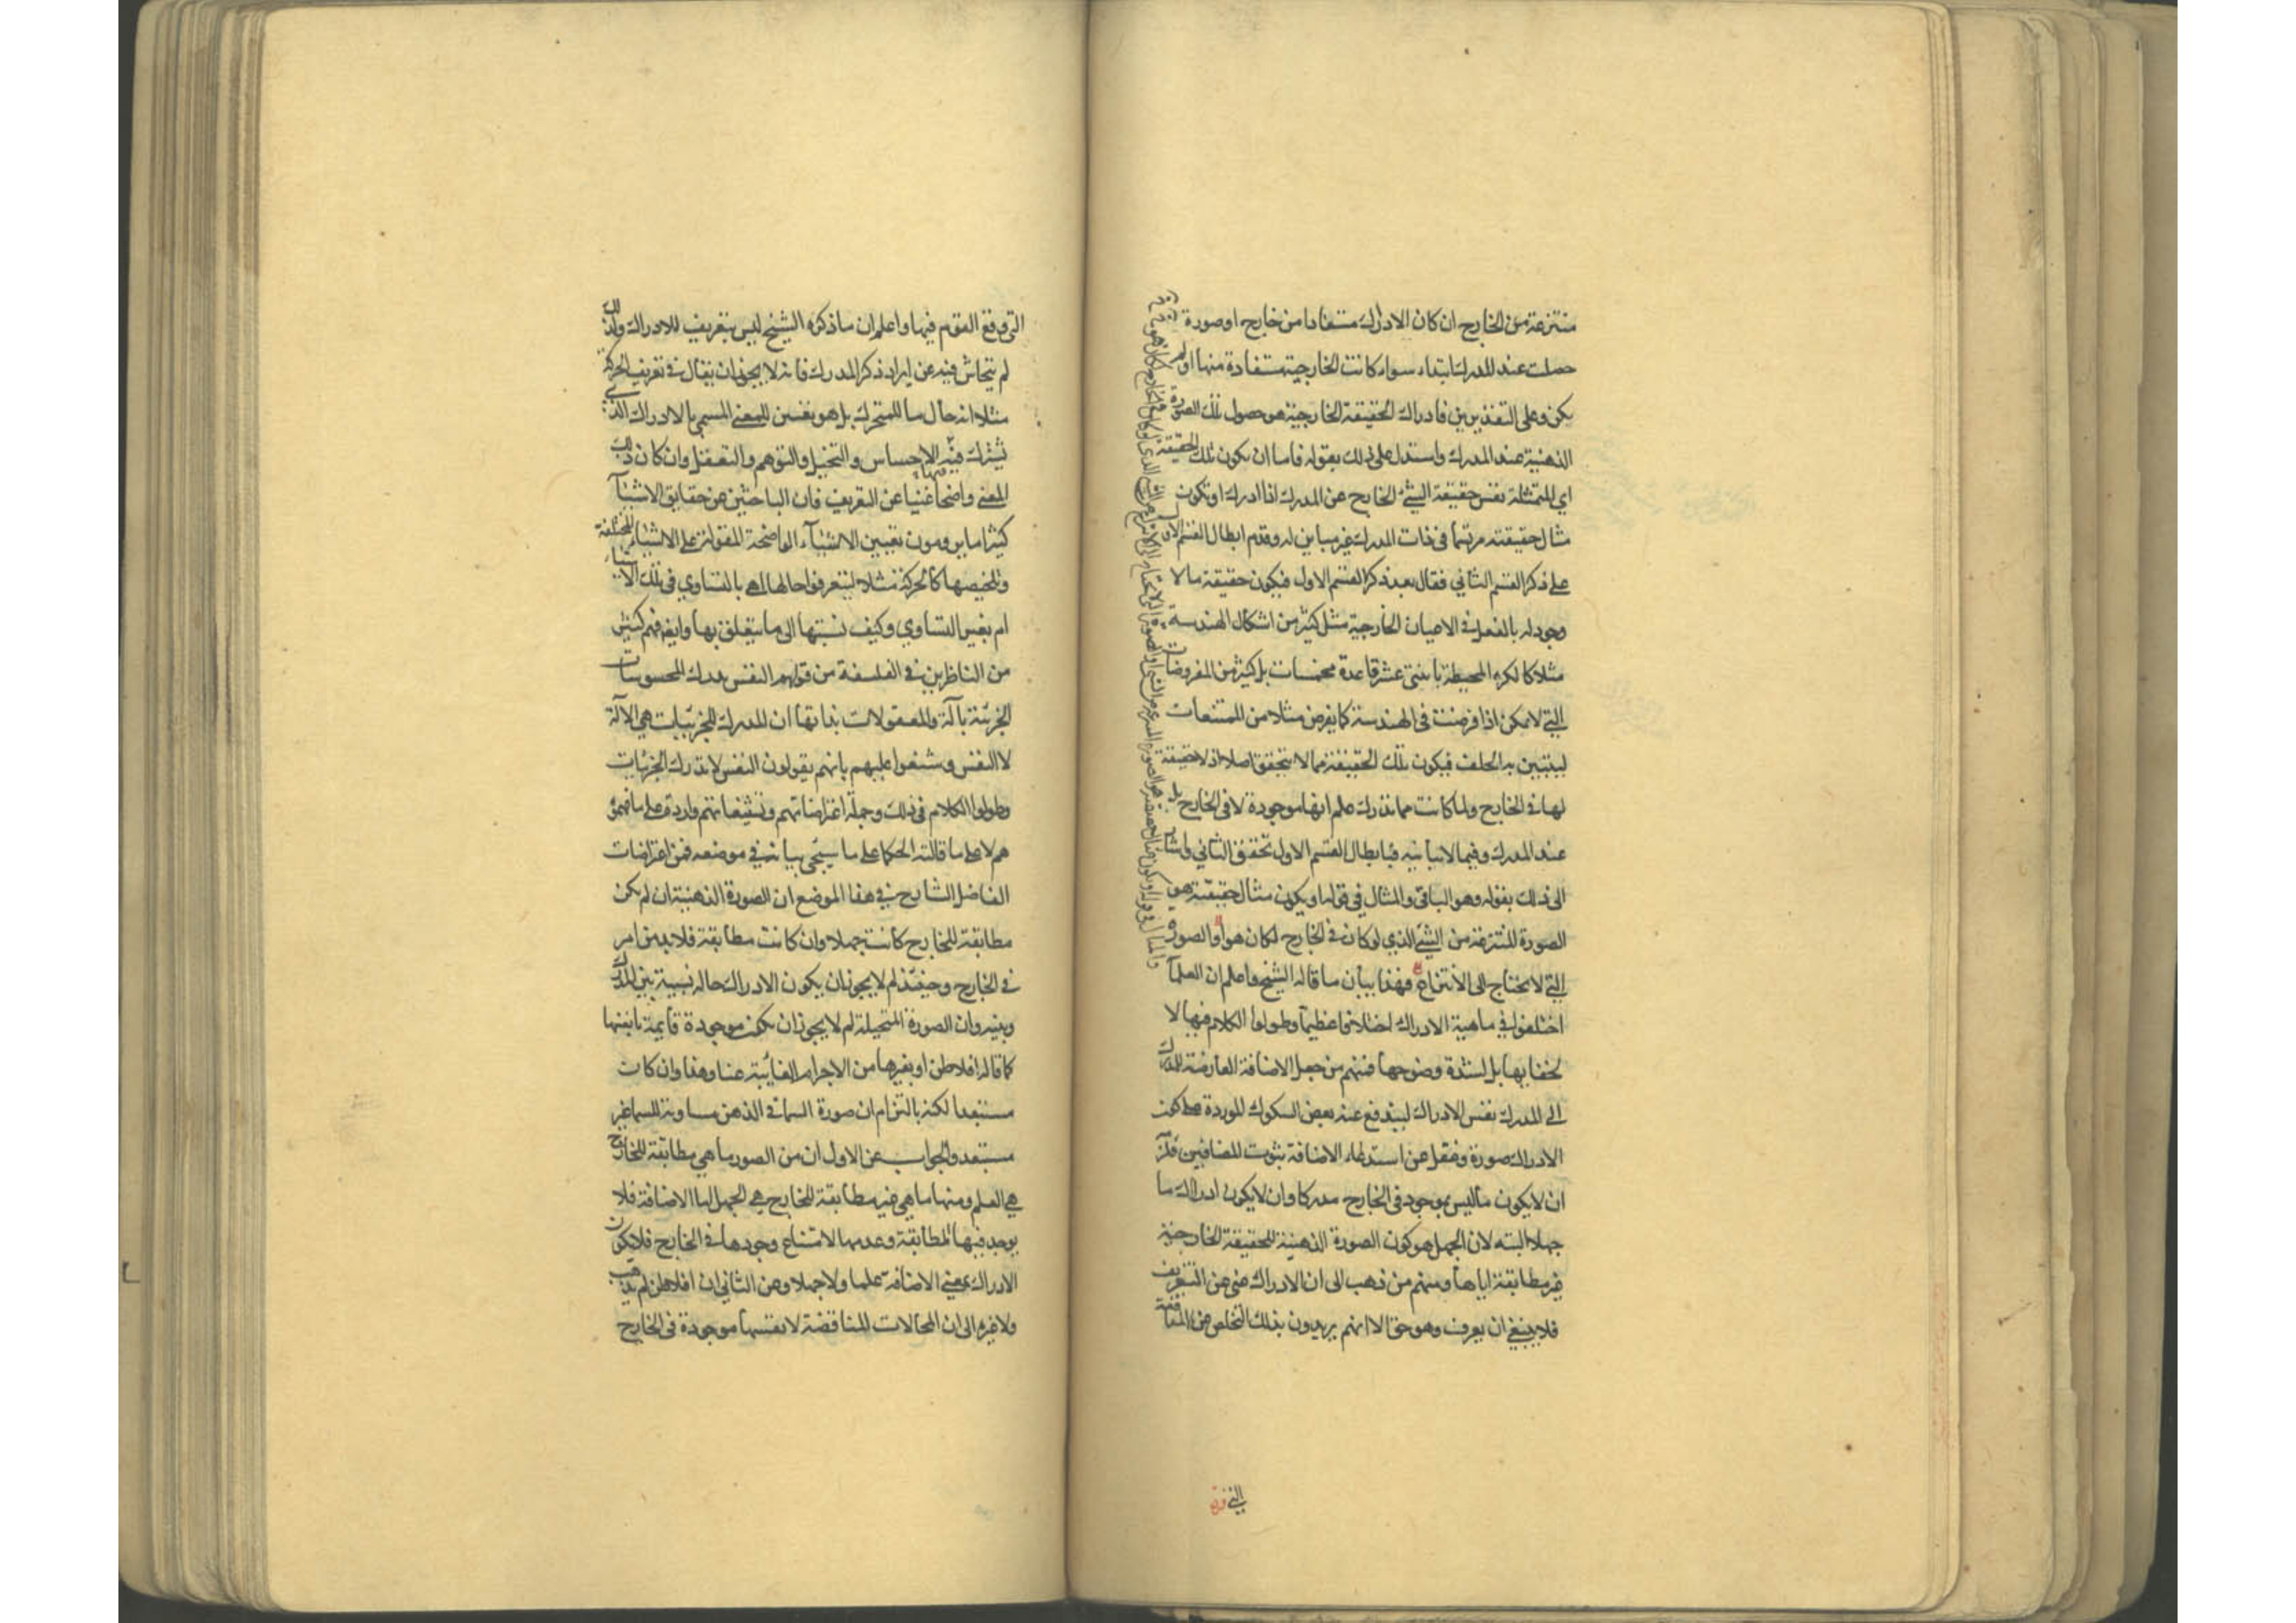 منتزعة من الخارج ان كان الادراك مستفادا من خارج او صورة
حصلت عند المدرك ابتداء سواء كانت الخارجية مستفادة منها او لم
يكن وعلى التقديرين فادراك الحقيقة الخارجية هو حصول تلك الصورة
الذهنية عند المدرك واستدل على ذلك بقوله فاما ان يكون تلك الحقيقة
اي المتمثلة نفس حقيقة الشئ الخارج عن المدرك اذا ادرك او تكون
مثال حقيقته مرتسما فى ذات المدرك غير مباين له وقدم ابطال القسم الاول
على ذكر القسم الثاني فقال بعد ذكر القسم الاول فيكون حقيقة ما لا
وجود له بالفعل فى الاعيان الخارجية مثل كثير من اشكال الهندسة
مثلا كالكره المحيطة باثنتى عشر قاعدة مخمسات بل كثير من المفروضات
التي لا تمكن اذا فرضت فى الهندسة كما يفرض مثلا من الممتنعات
ليتبين به الخلف فيكون تلك الحقيقة مما لا يتحقق اصلا اذ لا حقيقة
لها فى الخارج ولما كانت مما تدرك علم انها موجودة لا فى الخارج بل
عند المدرك وفيما لا تباينه فبابطال القسم الاول تحقق الثاني واشار
الى ذلك بقوله وهو الباقى والمثال فى قوله او يكون مثال حقيقته هو
الصورة المنتزعة من الشئ الذي لو كان فى الخارج لكان هو او الصوره
التى لا تحتاج الى الانتزاع فهذا بيان ما قاله الشيخ واعلم ان العلمآ
اختلفوا فى ماهية الادراك اختلافا عظيما وطولوا الكلام فيها لا
لخفائها بل لشدة وضوحها فمنهم من جعل الاضافة العارضة للمدرك
الى المدرك نفس الادراك ليندفع عنه بعض الشكوك الموردة على كون
الادراك صورة وغفل عن استدعاء الاضافة بثبوت المضافين فلزمه
ان لا يكون ما ليس بموجود فى الخارج مدركا وان لا يكون ادراك ما
جهلا البته لان الجهل هو كون الصورة الذهنية للحقيقة الخارجية
غير مطابقة اياها ومنهم من ذهب الى ان الادراك غنى عن التعريف
فلا ينبغي ان يعرف وهو حق الا انهم يريدون بذلك التخلص عن المناقضة
التى وقع القوم فيها واعلم ان ما ذكره الشيخ ليس بتعريف للادراك ولذلك
لم يتحاش فيه عن ايراد ذكر المدرك فانه لا يجوز ان يقال فى تعريف الحركة
مثلا انه حال ما للمتحرك بل هو تعيين للمعنى المسمى بالادراك الذى
تشترك فيه الاحساس والتخيل والتوهم والتعقل وان كان ذلك
المعنى واضحا غنيا عن التعريف فان الباحثين عن حقايق الاشيآ
كثيرا ما يرومون تعيين الاشيآء الواضحة المقولة على الاشياء المختلفة
وتلخيصها كالحركة مثلا ليتعرفوا حالها اهى بالتساوي فى تلك الاشياء
ام بغير التساوي وكيف نسبتها الى ما يتعلق بها وايضا فهم كثير
من الناظرين فى الفلسفة من قولهم النفس مدرك للمحسوسات
الجزئية بآلة وللمعقولات بذاتها ان المدرك للجزئيات هى الآلة
لا النفس وشنعوا عليهم بانهم يقولون النفس لا تدرك الجزئيات
وطولوا الكلام فى ذلك وجملة اعتراضاتهم وتشنيعاتهم واردة على ما فهموه
هم لا على ما قالته الحكما على ما سيجئ بيانه فى موضعه فمن اعتراضات
الفاضل الشارح فى هذا الموضع ان الصورة الذهنية ان لم يكن
مطابقة للخارج كانت جهلا وان كانت مطابقة فلا بد من امر
فى الخارج وحينئذ لم لا يجوز ان يكون الادراك حاله نسبية بين المدرك
وبينه وان الصورة المتخيلة لم لا يجوز ان تكون موجودة قايمة بانفسها
كما قاله افلاطن او بغيرها من الاجرام الغائبة عنا وهذا وان كان
مستبعدا لكنه بالتزام ان صورة السما فى الذهن مساوية للسما غير
مستبعد والجواب عن الاول ان من الصور ما هى مطابقة للخارج
هى العلم ومنها ما هى غير مطابقة للخارج هى الجهل اما الاضافة فلا
يوجد فيها المطابقة وعدمها لامتناع وجودها فى الخارج فلا يكون
الادراك بمعنى الاضافة علما ولا جهلا وعن الثانى ان افلاطن لم يذهب
ولا غيره الى ان المحالات المناقضة لانفسها موجودة فى الخارج
التى